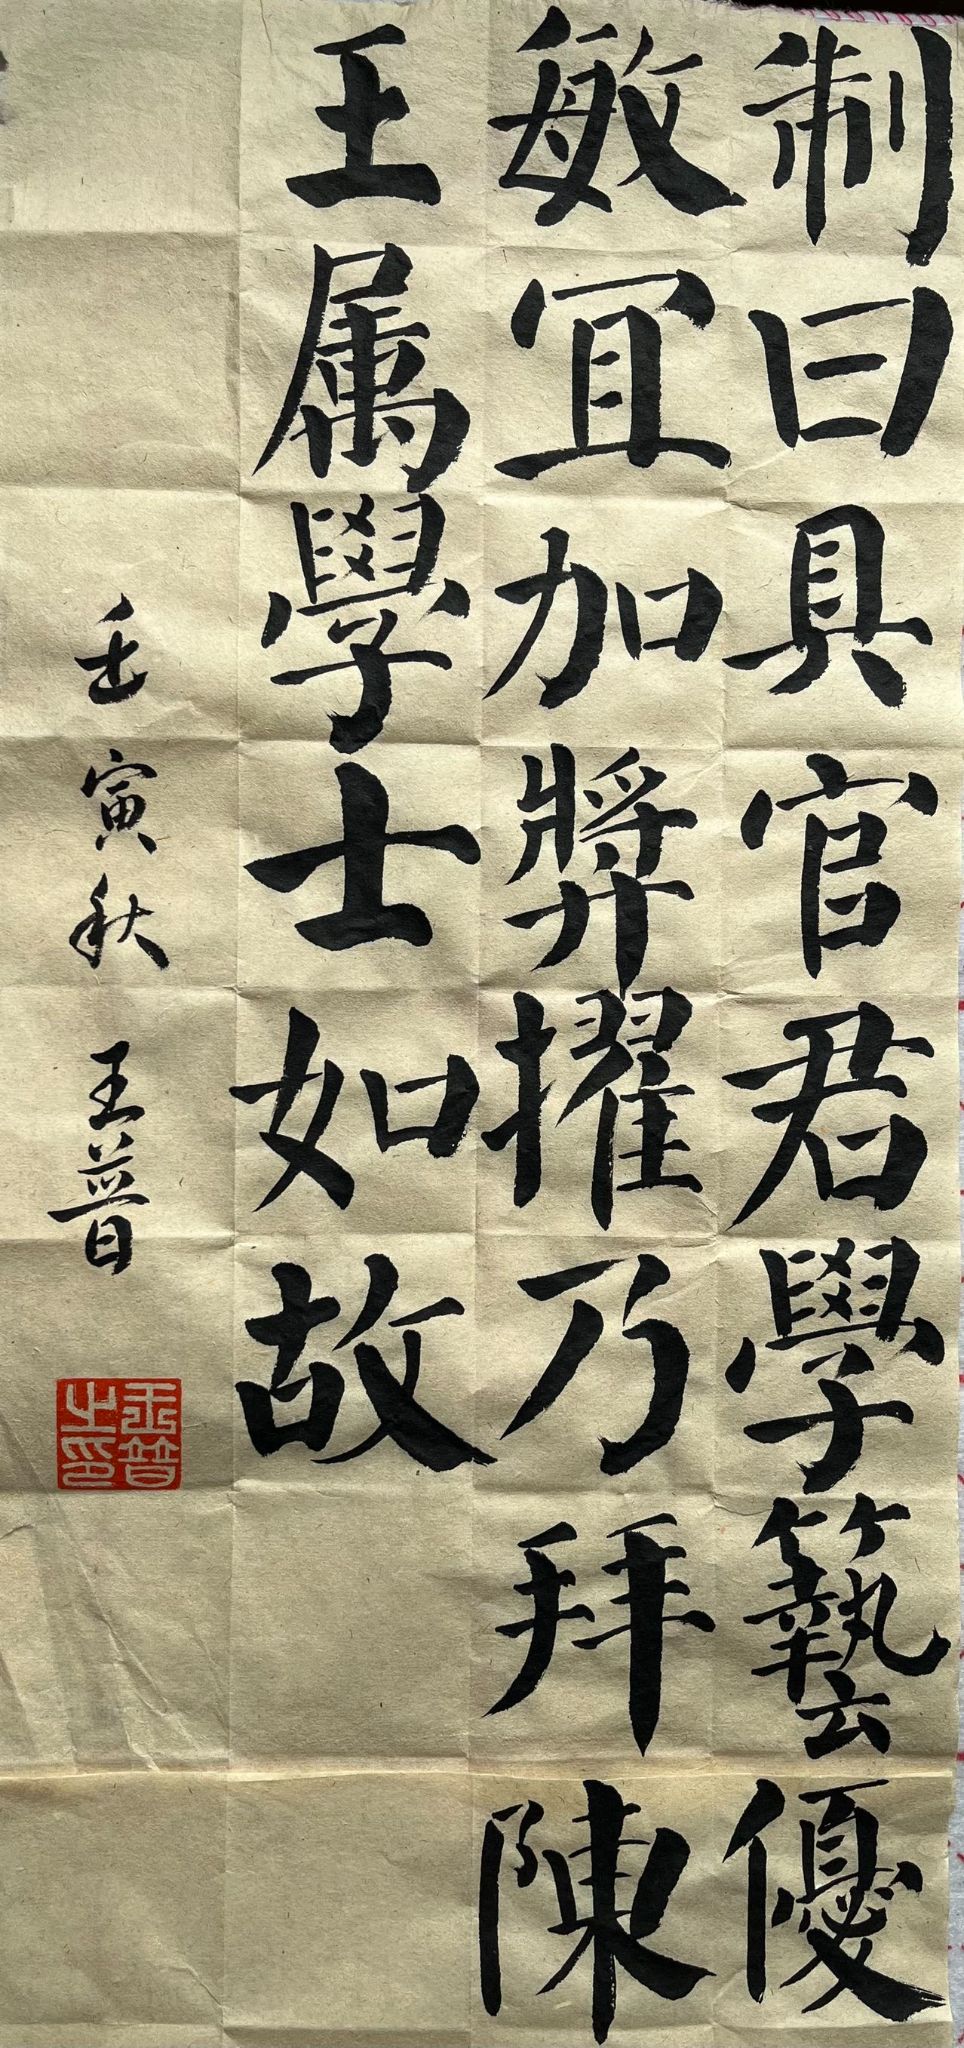 制曰具官君學藝優
敏宜加奬擢乃拜陳
王属學士如故
壬寅秋 王普
王普之印